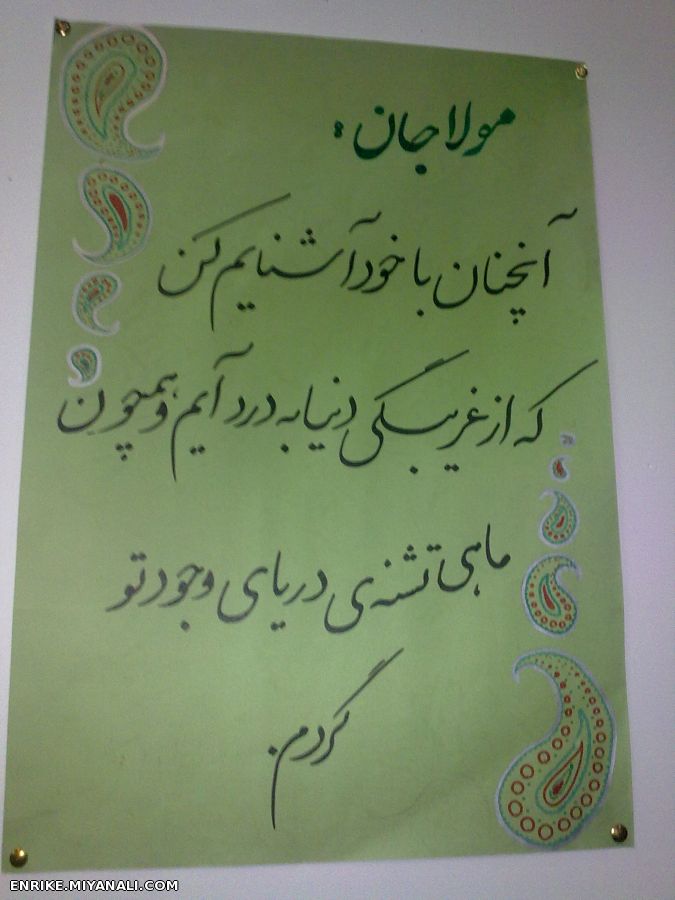 مولا جان :
آنچنان با خود آشنایم کن
که از غریبگی دنیا به درد آیم و همچون
ماهی تشنه‌ی دریای وجود تو
گردم.
ENRIKE.MIYANALI.COM